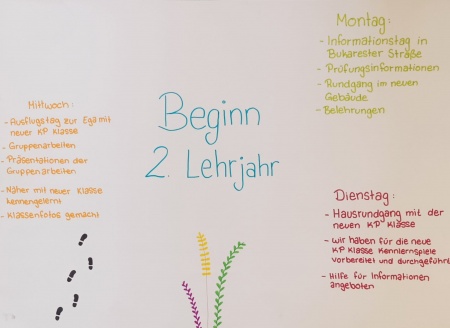 Beginn
2. Lehrjahr
Montag:
- Informationstag in
Bukarester Straße
- Prüfungsinformationen
- Rundgang im neuen
Gebäude
- Belehrungen
Dienstag:
- Hausrundgang mit der
neuen KP Klasse
- wir haben für die neue
KP Klasse Kennlernspiele
vorbereitet und durchgeführt
- Hilfe für Informationen
angeboten
Mittwoch:
- Ausflugstag zur Ega mit
neuer KP Klasse
- Gruppenarbeiten
- Präsentationen der
Gruppenarbeiten
- Näher mit neuer Klasse
kennengelernt
- Klassenfotos gemacht